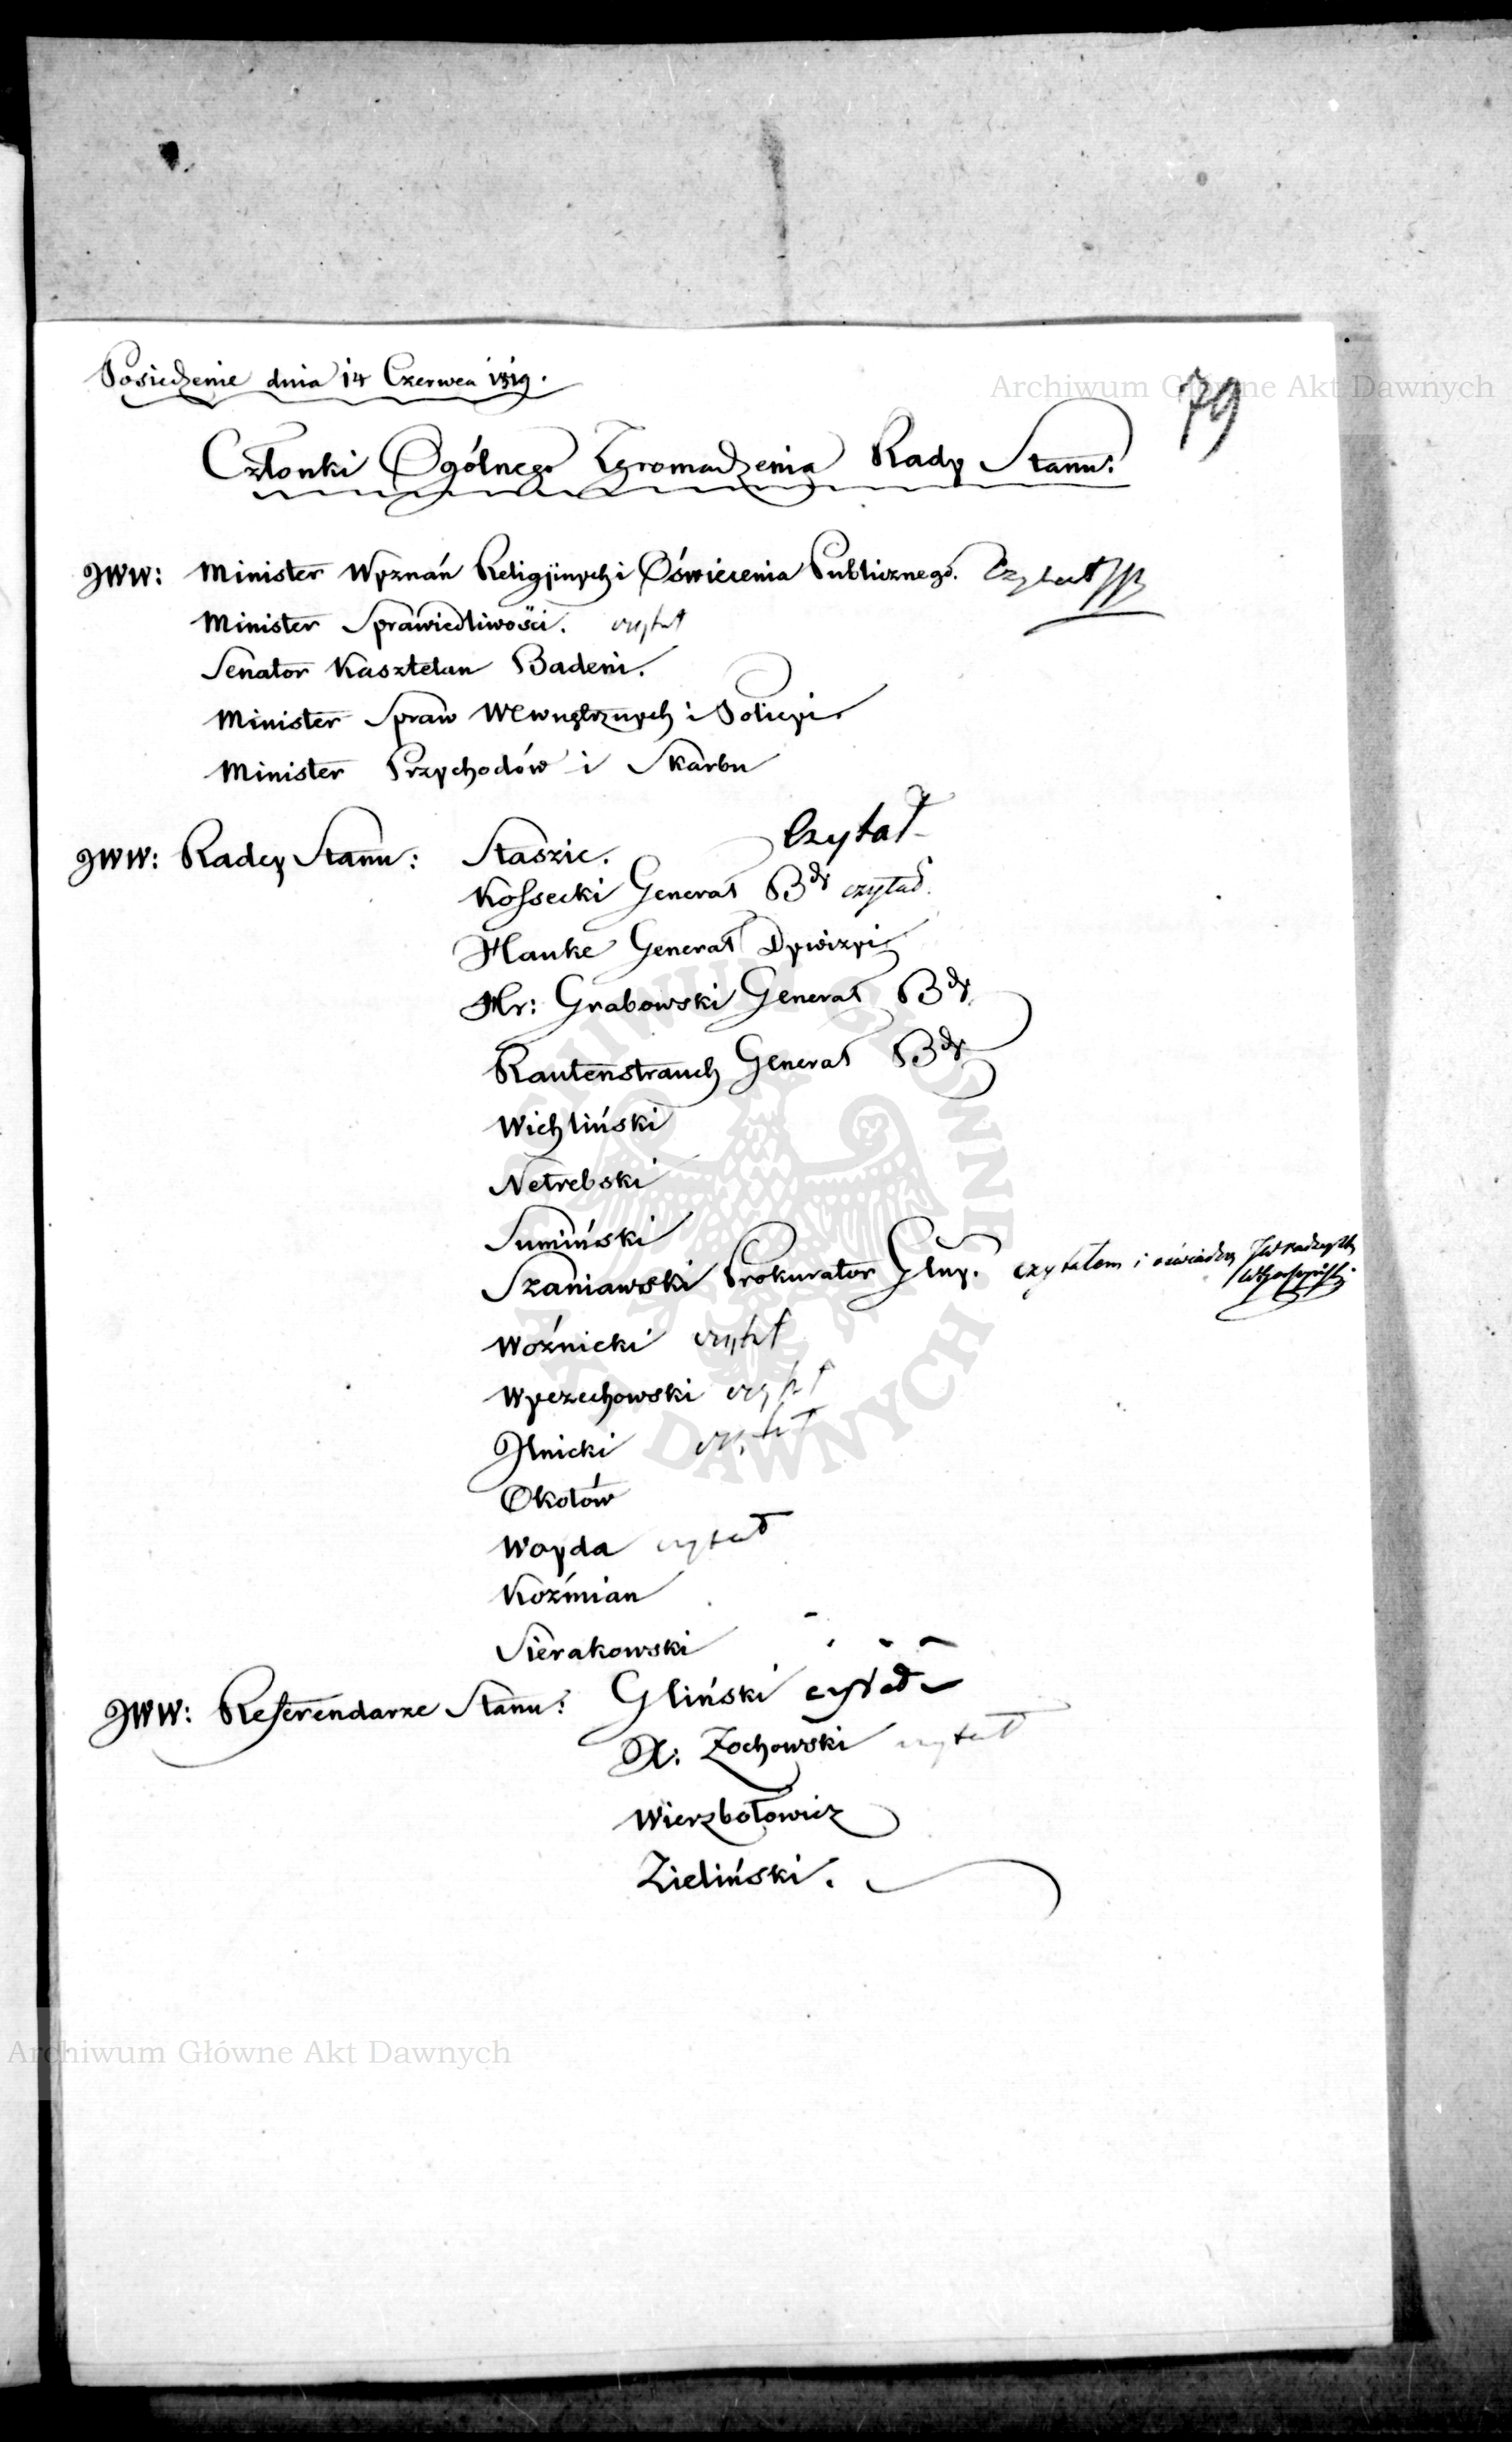 Posiedzenie dnia 14 Czerwca 1819.
79
Członki Ogólnego Zgromadzenia Rady Stanu:
JWW: Minister Wyznań Religijnych i Oświecenia Publicznego. Czytał
Minister Sprawiedliwości. czytał
Senator Kasztelan Badeni.
Minister Spraw Wewnętrznych i Policyi
Minister Przychodów i Skarbu
JWW: Radcy Stanu: Staszic. Czytał
Kossecki Generał Bdy czytał.
Hauke Generał Dywizyi
Hr: Grabowski Generał Bdy
Rautenstrauch Generał Bdy
Wichliński
Netrebski
Sumiński
Szaniawski Prokurator Glny. czytałem i
Woźnicki czytał
Wyczechowski czytał
Ilnicki czytał
Okołów
Woyda czytał
Koźmian
Sierakowski
JWW: Referendarze Stanu: Gliński czytał
X: Zochowski czytał
Wierzbołowicz
Zieliński.
Archiwum Główne Akt Dawnych
Archiwum Główne Akt Dawnych
ARCHIWUM GŁÓWNE AKT DAWNYCH